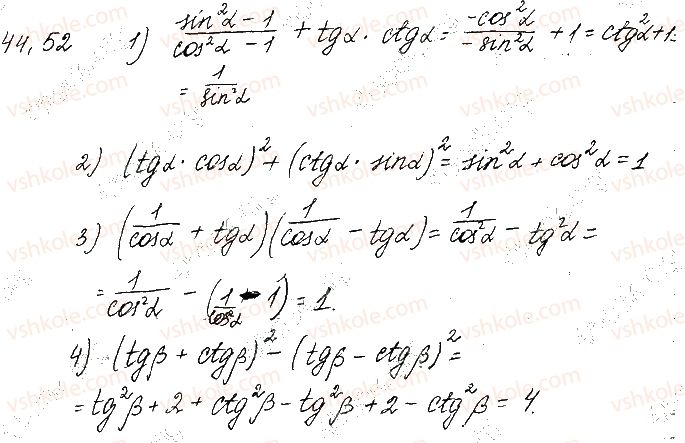 44,52 1) (sin²α - 1)/(cos²α - 1) + tgα · ctgα = (-cos²α)/(-sin²α) + 1 = ctg²α + 1 =
= 1/sin²α
2) (tgα · cosα)² + (ctgα · sinα)² = sin²α + cos²α = 1
3) (1/cosα + tgα)(1/cosα - tgα) = 1/cos²α - tg²α =
= 1/cos²α - (1/cos²α - 1) = 1.
4) (tgβ + ctgβ)² - (tgβ - ctgβ)² =
= tg²β + 2 + ctg²β - tg²β + 2 - ctg²β = 4.
vshkole.com